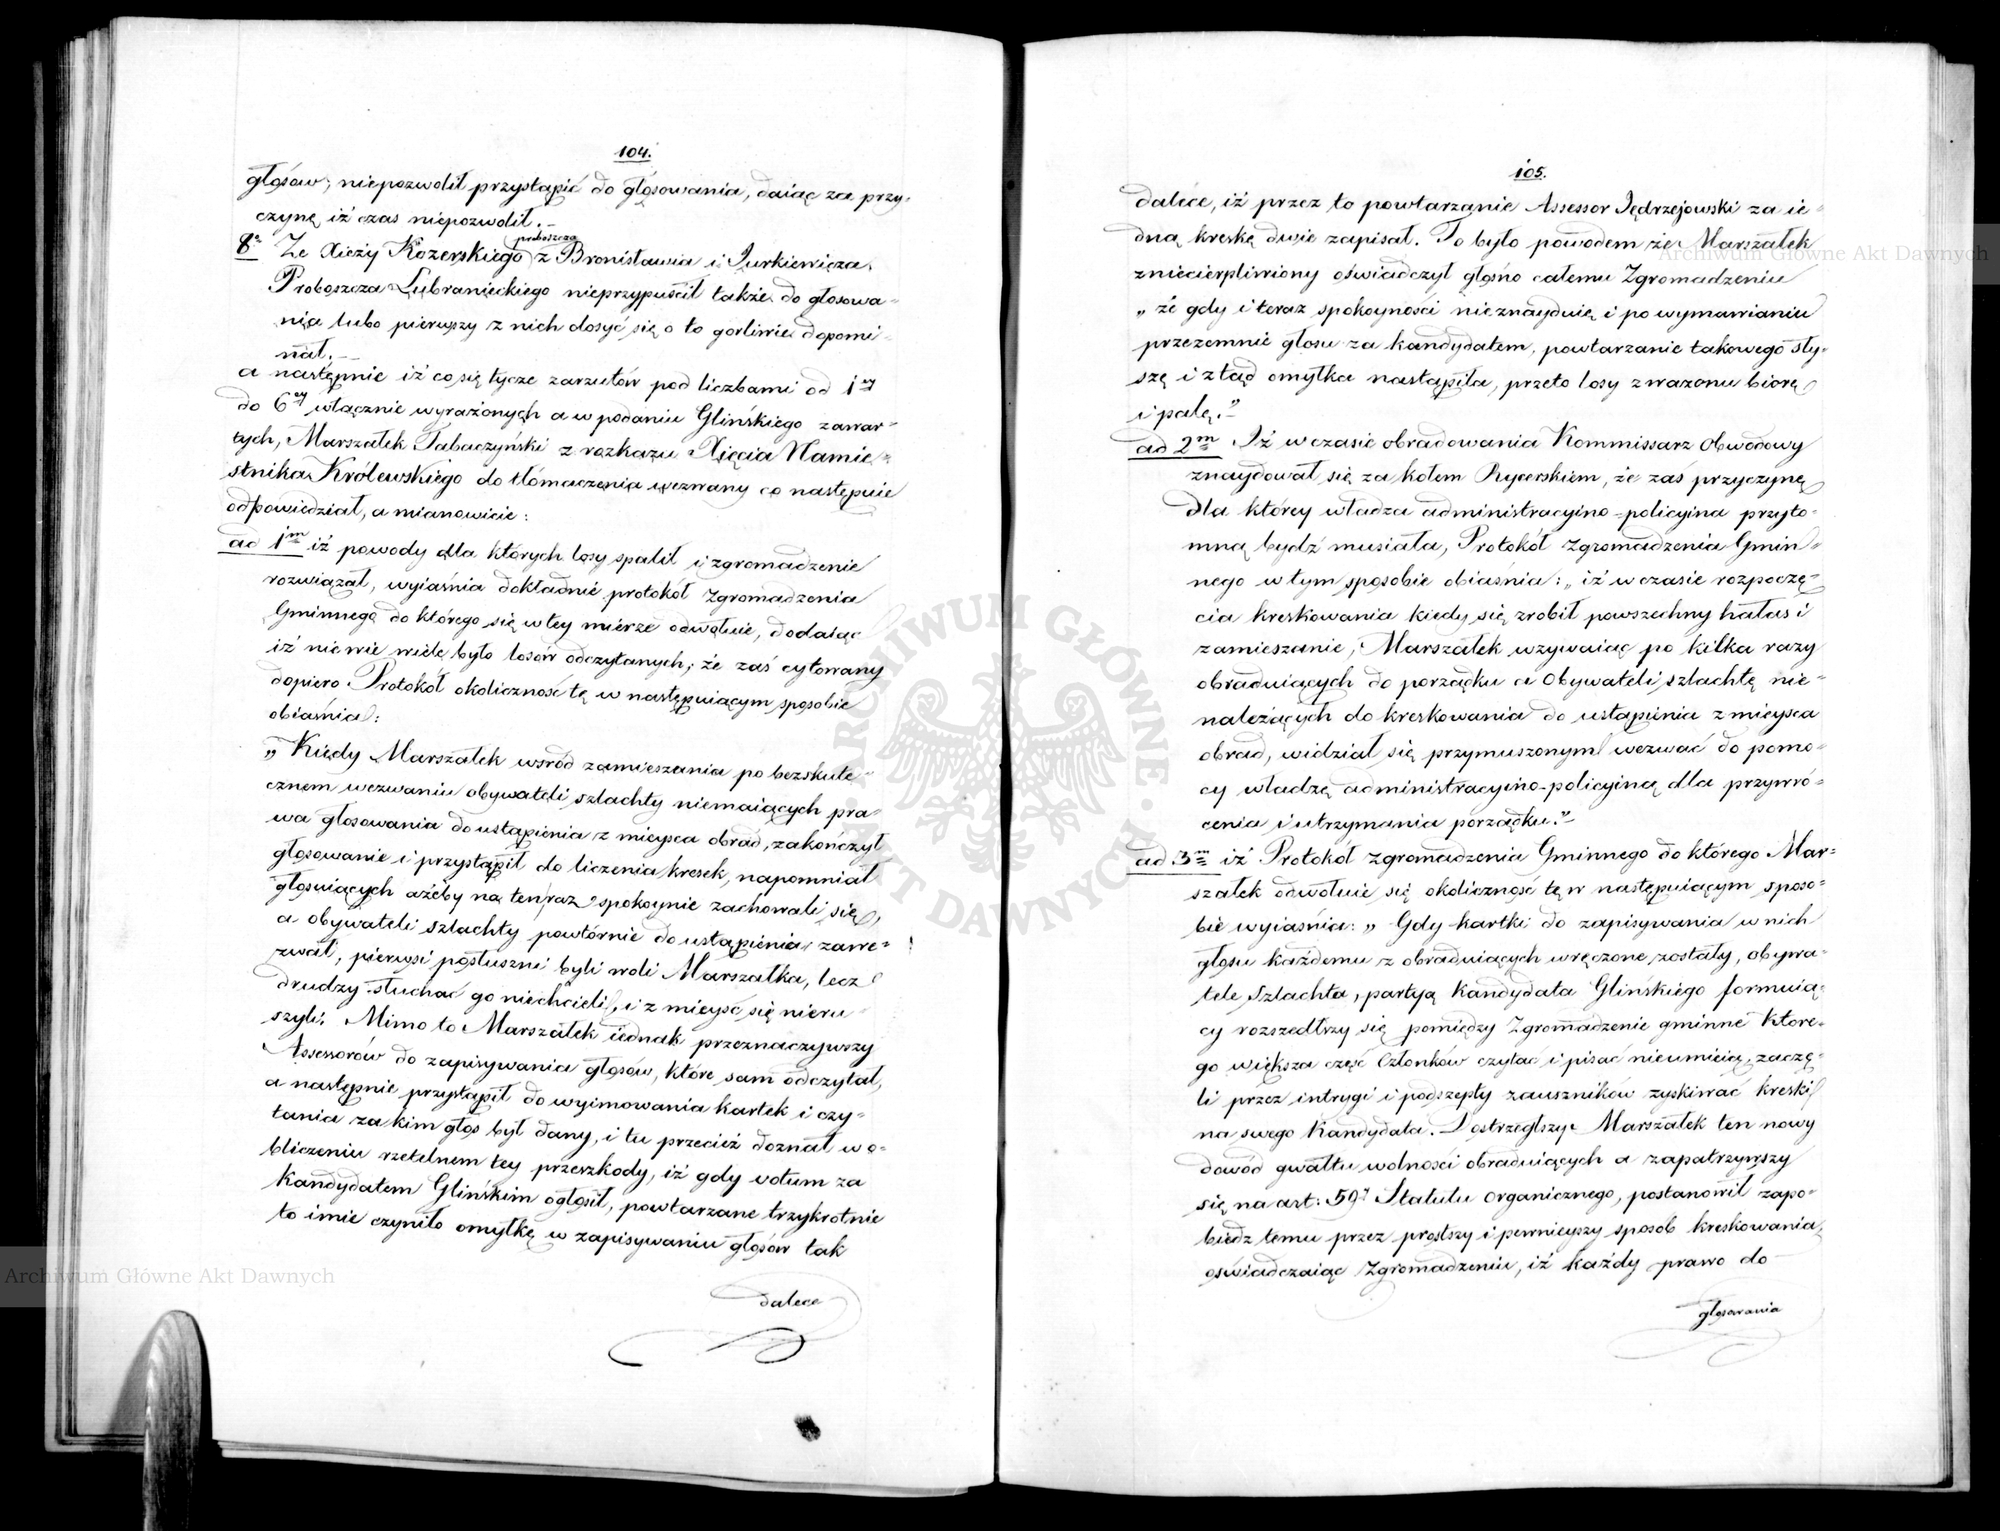 104.
głosów; niepozwolił przystąpić do głosowania, daiąc za przy-
czynę iż czas niepozwolił. —
8o Ze Xięży Kozerskiego proboszcza z Bronisławia i Jurkiewicza
Proboszcza Lubranieckiego nieprzypuścił także do głosowa-
nia lubo pierwszy z nich dosyć się o to gorliwie dopomi-
nał. —
a następnie iż co się tycze zarzutów pod liczbami od 1ey
do 6ey włącznie wyrażonych a w podaniu Glińskiego zawar-
tych, Marszałek Tabaczyński z rozkazu Xięcia Namie-
stnika Królewskiego do tłómaczenia wezwany co następuie
odpowiedział, a mianowicie:
ad 1m iż powody dla których losy spalił i zgromadzenie
rozwiązał, wyiaśnia dokładnie protokół Zgromadzenia
Gminnego do którego się w tey mierze odwołuie, dodaiąc
iż nie wie wiele było losów odczytanych; że zaś cytowany
dopiero Protokół okoliczność tę w następuiącym sposobie
obiaśnia:
„ Kiedy Marszałek wśród zamieszania po bezskute-
cznem wezwaniu obywateli szlachty niemaiących pra-
wa głosowania do ustąpienia z mieysca obrad, zakończył
głosowanie i przystąpił do liczenia kresek, napomniał
głosuiących ażeby na ten raz spokoynie zachowali się,
a obywateli szlachty powtórnie do ustąpienia zawe-
zwał, pierwsi posłuszni byli woli Marszałka, lecz
drudzy słuchać go niechcieli, i z mieysc się nieru-
szyli. Mimo to Marszałek iednak przeznaczywszy
Assessorów do zapisywania głosów, które sam odczytał,
a następnie przystąpił do wyimowania kartek i czy-
tania za kim głos był dany, i tu przecież doznał w o-
bliczeniu rzetelnem tey przeszkody, iż gdy votum za
Kandydatem Glińskim ogłosił, powtarzane trzykrotnie
to imie czyniło omyłkę w zapisywaniu głosów tak
dalece
105.
dalece, iż przez to powtarzanie Assessor Jędrzejowski za ie-
dną kreskę dwie zapisał. To było powodem że Marszałek
zniecierpliwiony oświadczył głośno całemu Zgromadzeniu
„ że gdy i teraz spokoyności nieznayduię i po wymawianiu
przezemnie głosu za kandydatem, powtarzanie takowego sły-
szę i ztąd omyłka nastąpiła, przeto losy z wazonu biorę
i palę.” —
ad 2m Iż w czasie obradowania Kommissarz Obwodowy
znaydował się za kołem Rycerskiem, że zaś przyczynę
dla którey władza administracyino-policyina przyto-
mną bydź musiała, Protokół Zgromadzenia Gmin-
nego w tym sposobie obiaśnia: „ iż w czasie rozpoczę-
cia kreskowania kiedy się zrobił powszechny hałas i
zamieszanie, Marszałek wzywaiąc po kilka razy
obraduiących do porządku a Obywateli szlachtę nie-
należących do kreskowania do ustąpienia z mieysca
obrad, widział się przymuszonym wezwać do pomo-
cy władzę administracyino-policyiną dla przywró-
cenia i utrzymania porządku.” —
ad 3m iż Protokół zgromadzenia Gminnego do którego Mar-
szałek odwołuie się okoliczność tę w następuiącym sposo-
bie wyiaśnia: „ Gdy kartki do zapisywania w nich
głosu każdemu z obraduiących wręczone zostały, obywa-
tele Szlachta, partyą Kandydata Glińskiego formuią-
cy rozszedłszy się pomiędzy Zgromadzenie gminne które-
go większa część Członków czytać i pisać nieumieią, zaczę-
li przez intrygi i podszepty zauszników zyskiwać kreski
na swego Kandydata. Dostrzegłszy Marszałek ten nowy
dowód gwałtu wolności obraduiących a zapatrzywszy
się na art: 59y Statutu organicznego, postanowił zapo-
biedz temu przez prostszy i pewnieyszy sposób kreskowania,
oświadczaiąc Zgromadzeniu, iż każdy prawo do
głosowania
Archiwum Główne Akt Dawnych
Archiwum Główne Akt Dawnych
ARCHIWUM GŁÓWNE · AKT DAWNYCH ·